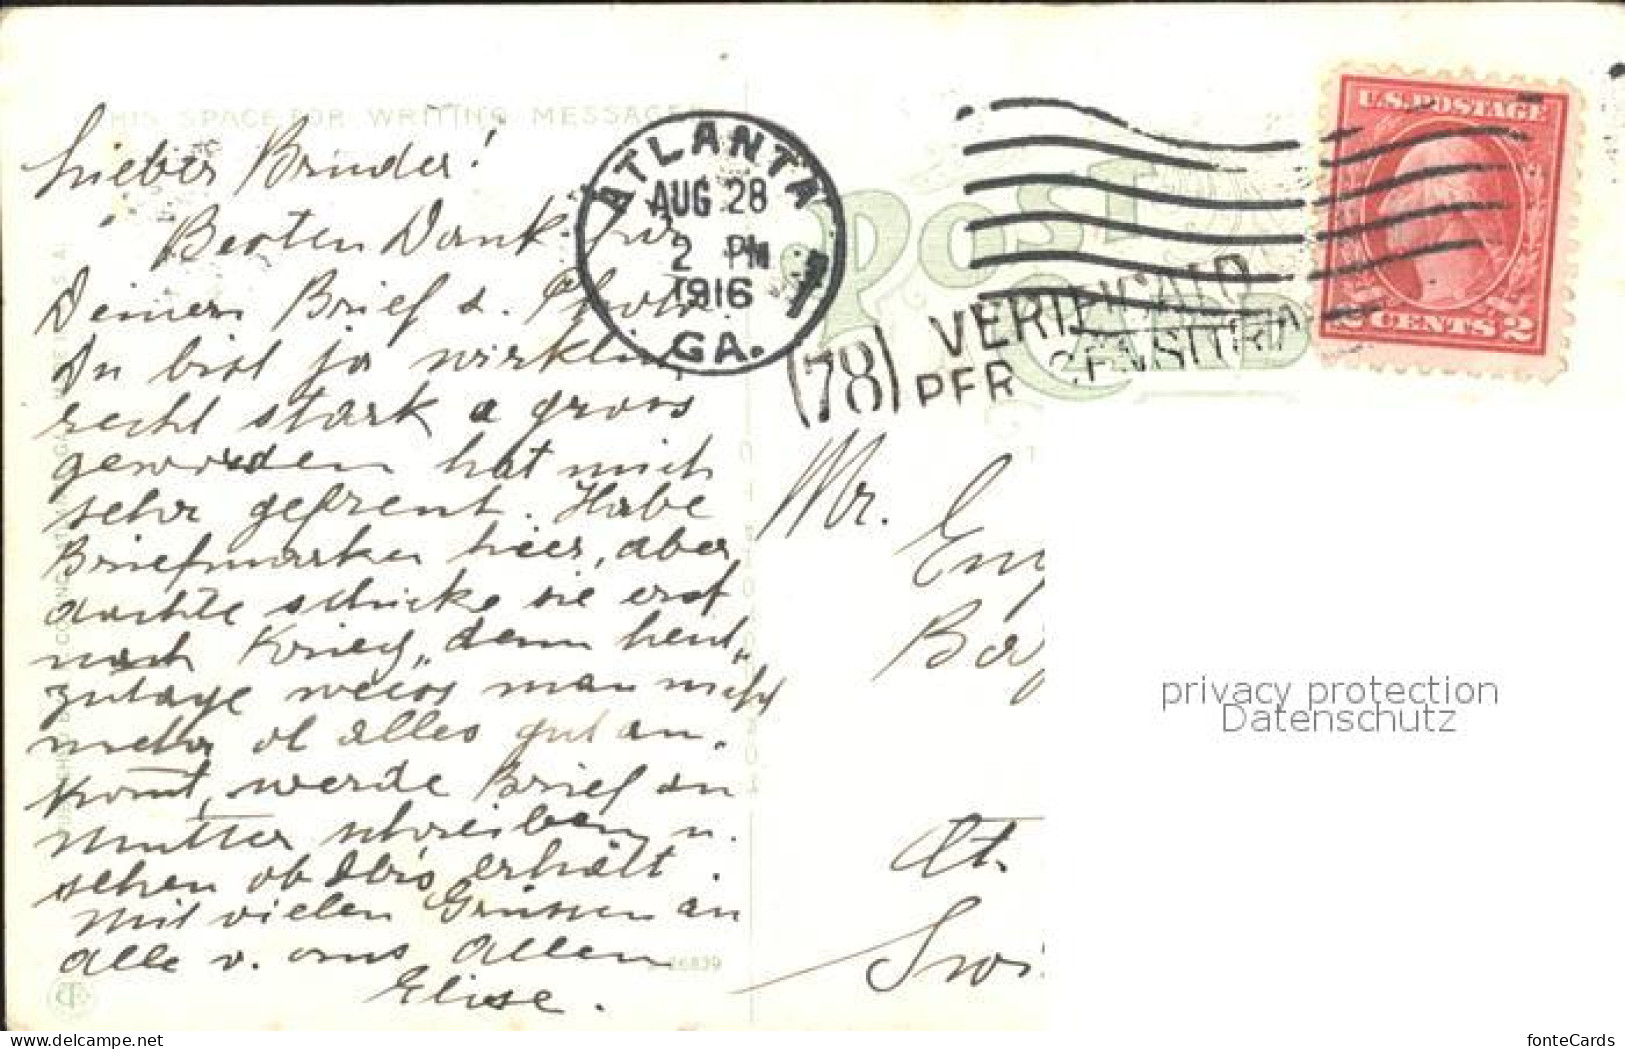 THIS SPACE FOR WRITING MESSAGES
Lieber Bruder!
Besten Dank für
Deinen Brief u. Photo.
Du bist ja wirklich
recht stark u gross
geworden hat mich
sehr gefreut. Habe
Briefmarken hier, aber
dachte schicke sie erst
nach Krieg, denn heut„
zutage weiss man nicht
mehr ob alles gut an„
komt, werde Brief an
Mutter schreiben u.
sehen ob sie's erhält.
Mit vielen Grüssen an
alle v. uns allen
Elise.
26839
ATLANTA
AUG 28
2 PM
1916
GA.
POST CARD
(78) VERIFICATO
PER CENSURA
U.S. POSTAGE
2 CENTS 2
Mr.
Eng
Ba
Ct.
Swi
privacy protection
Datenschutz
www.delcampe.net
fonteCards